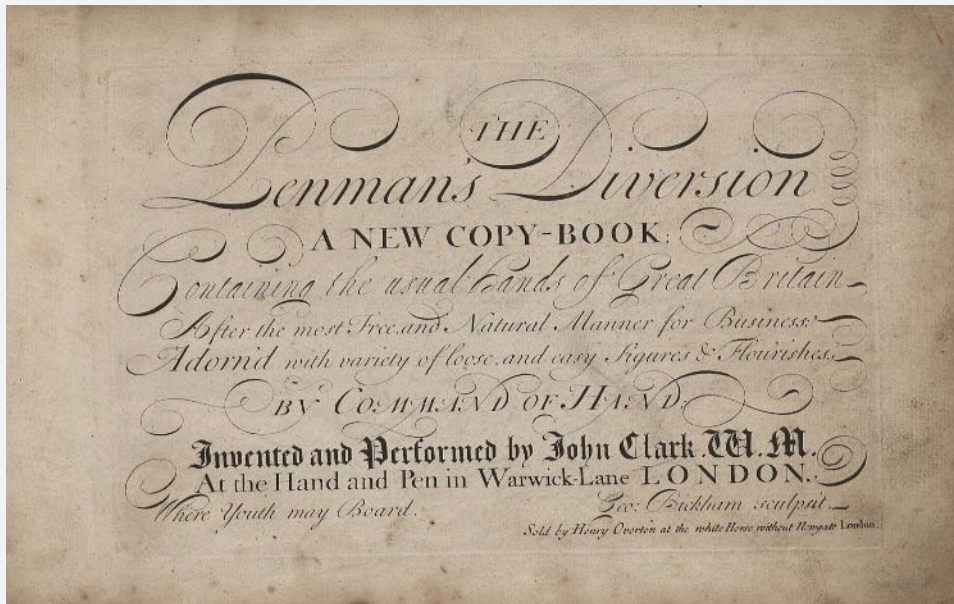 THE
Penman's Diversion
A NEW COPY-BOOK;
Containing the usual hands of Great Britain
After the most Free, and Natural Manner for Business:
Adorn'd with variety of loose, and easy Figures & Flourishes,
BY COMMAND OF HAND.
Invented and Performed by John Clark. W. M.
At the Hand and Pen in Warwick-Lane LONDON.
Where Youth may Board.
Geo: Bickham sculpsit.
Sold by Henry Overton at the white Horse without Newgate London.